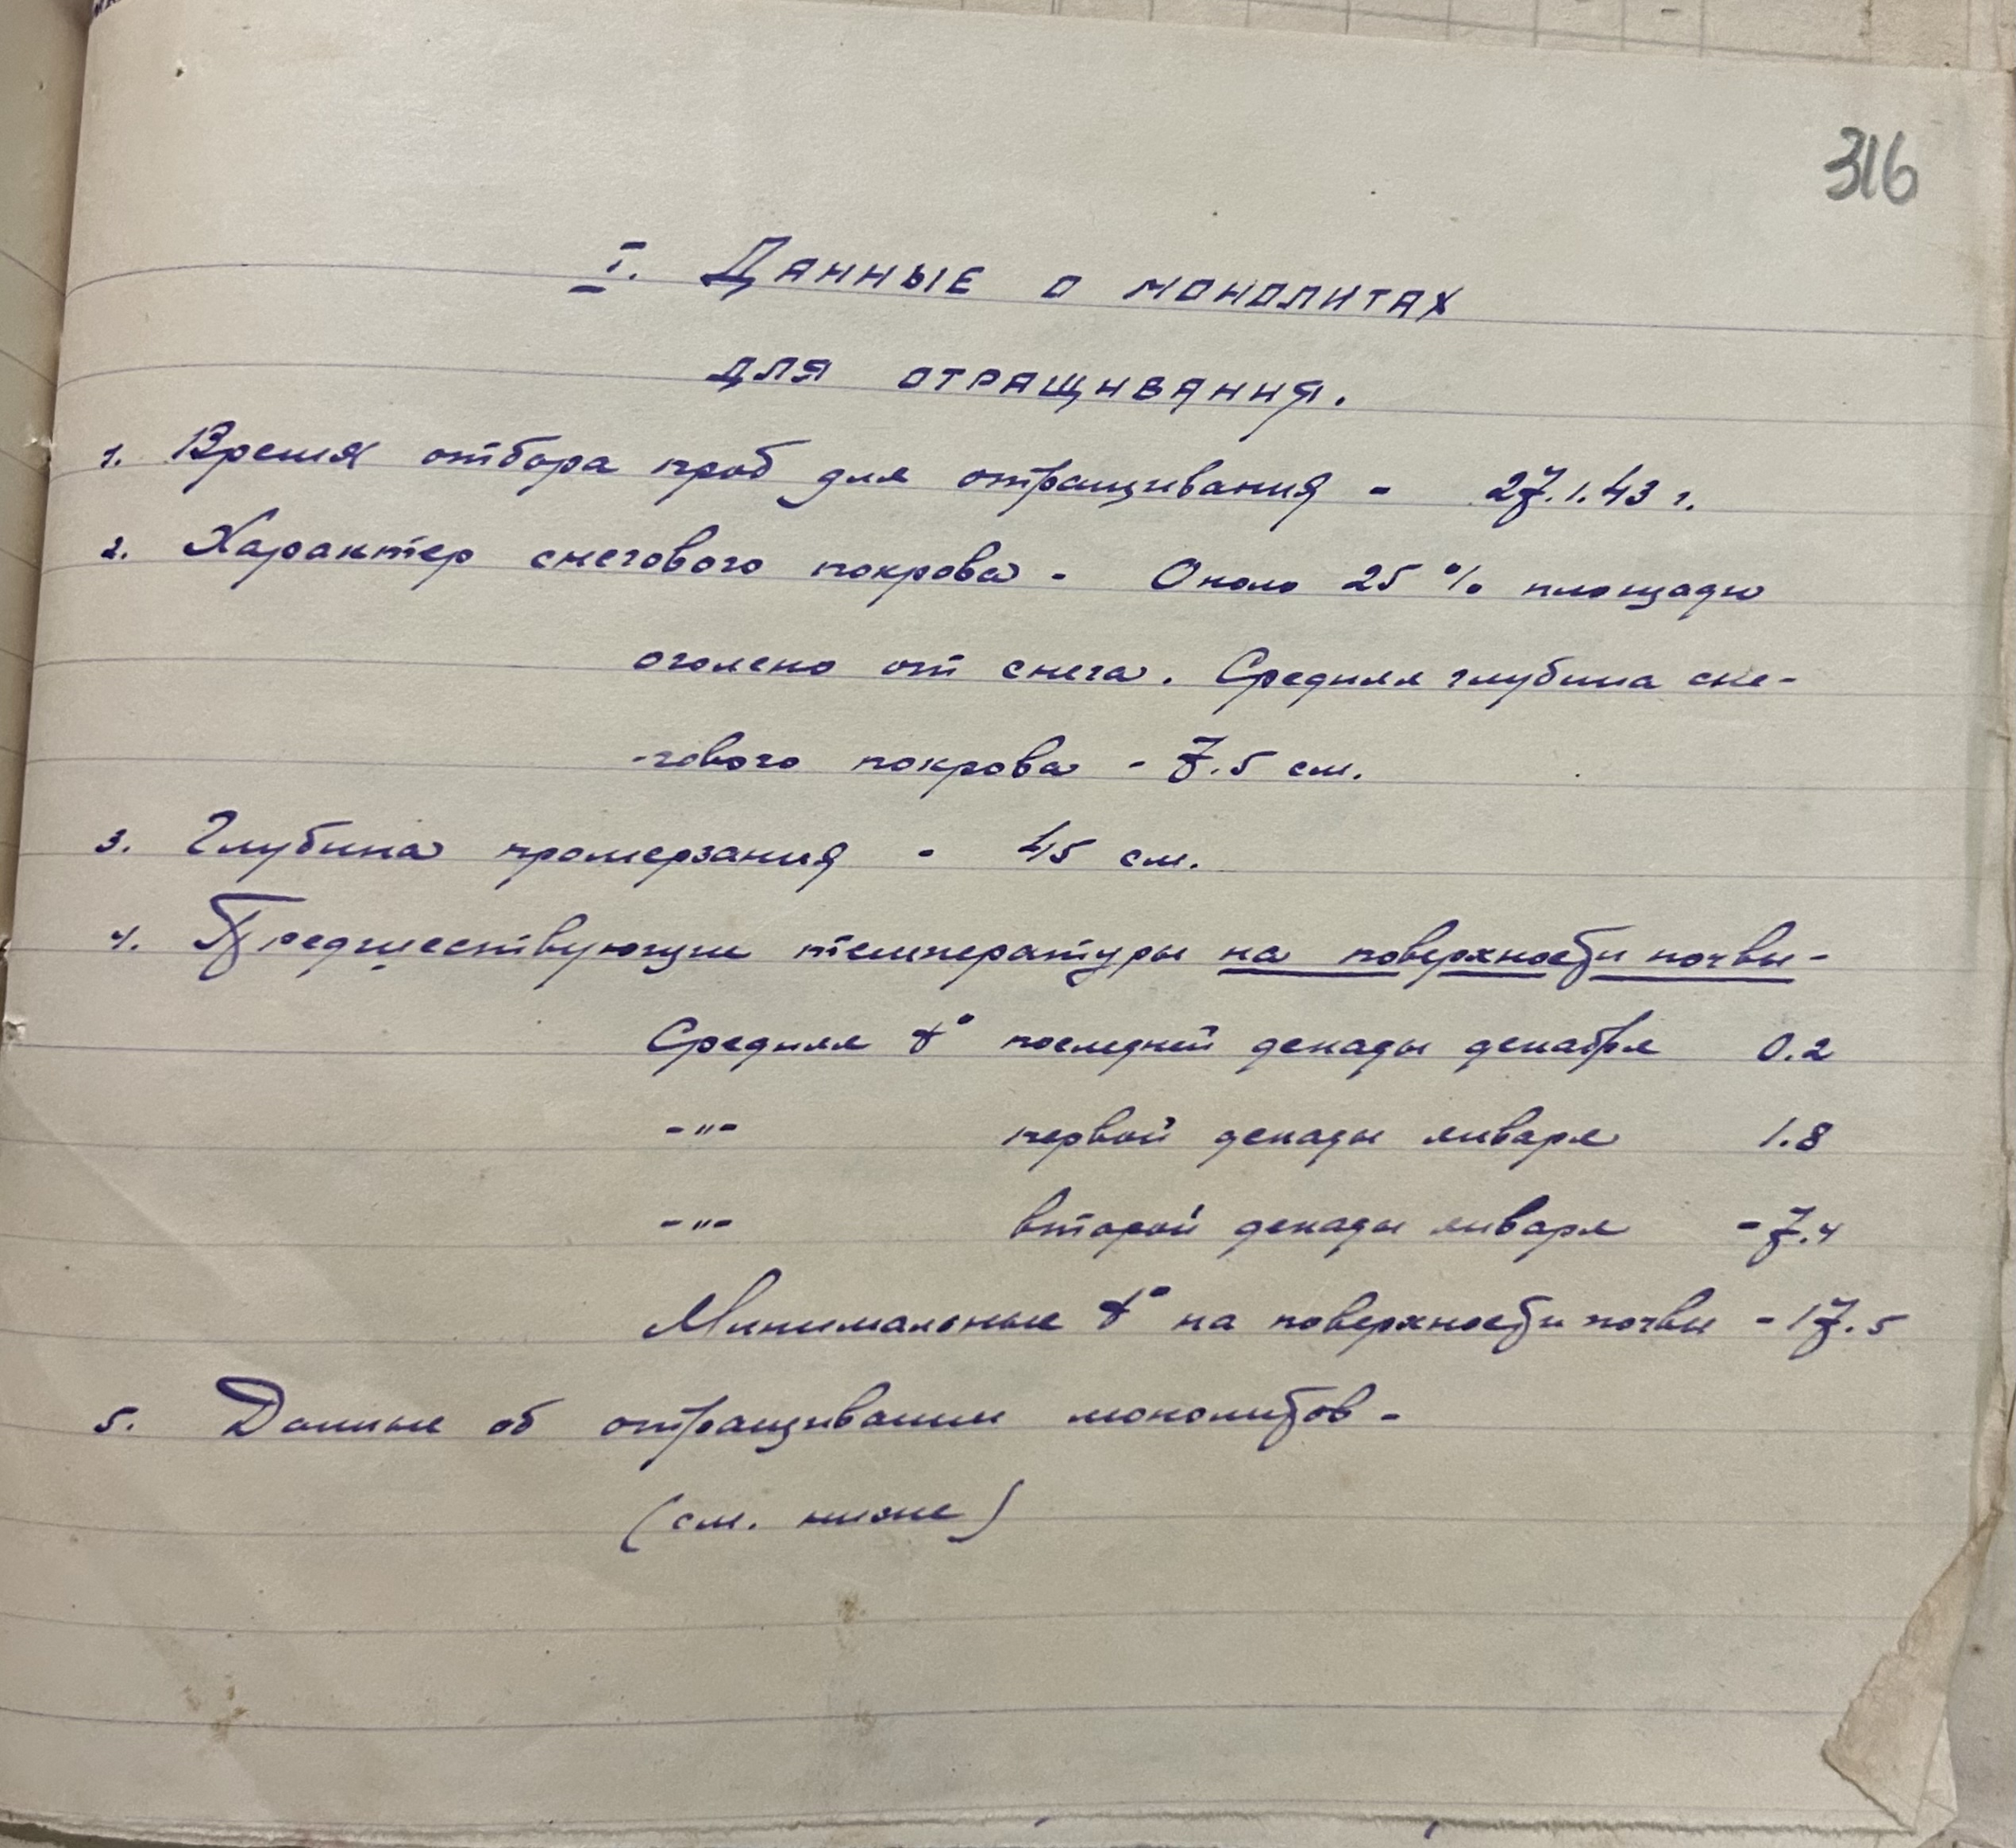 316
I. Данные о монолитах
для отращивания.
1. Время отбора проб для отращивания - 27.1.43 г.
2. Характер снегового покрова - Около 25 % площади
оголено от снега. Средняя глубина сне-
-гового покрова - 7.5 см.
3. Глубина промерзания - 45 см.
4. Предшествующие температуры на поверхности почвы -
Средняя t° последней декады декабря 0.2
-"- первой декады января 1.8
-"- второй декады января -7.4
Минимальные t° на поверхности почвы -17.5
5. Данные об отращивании монолитов -
(см. ниже)